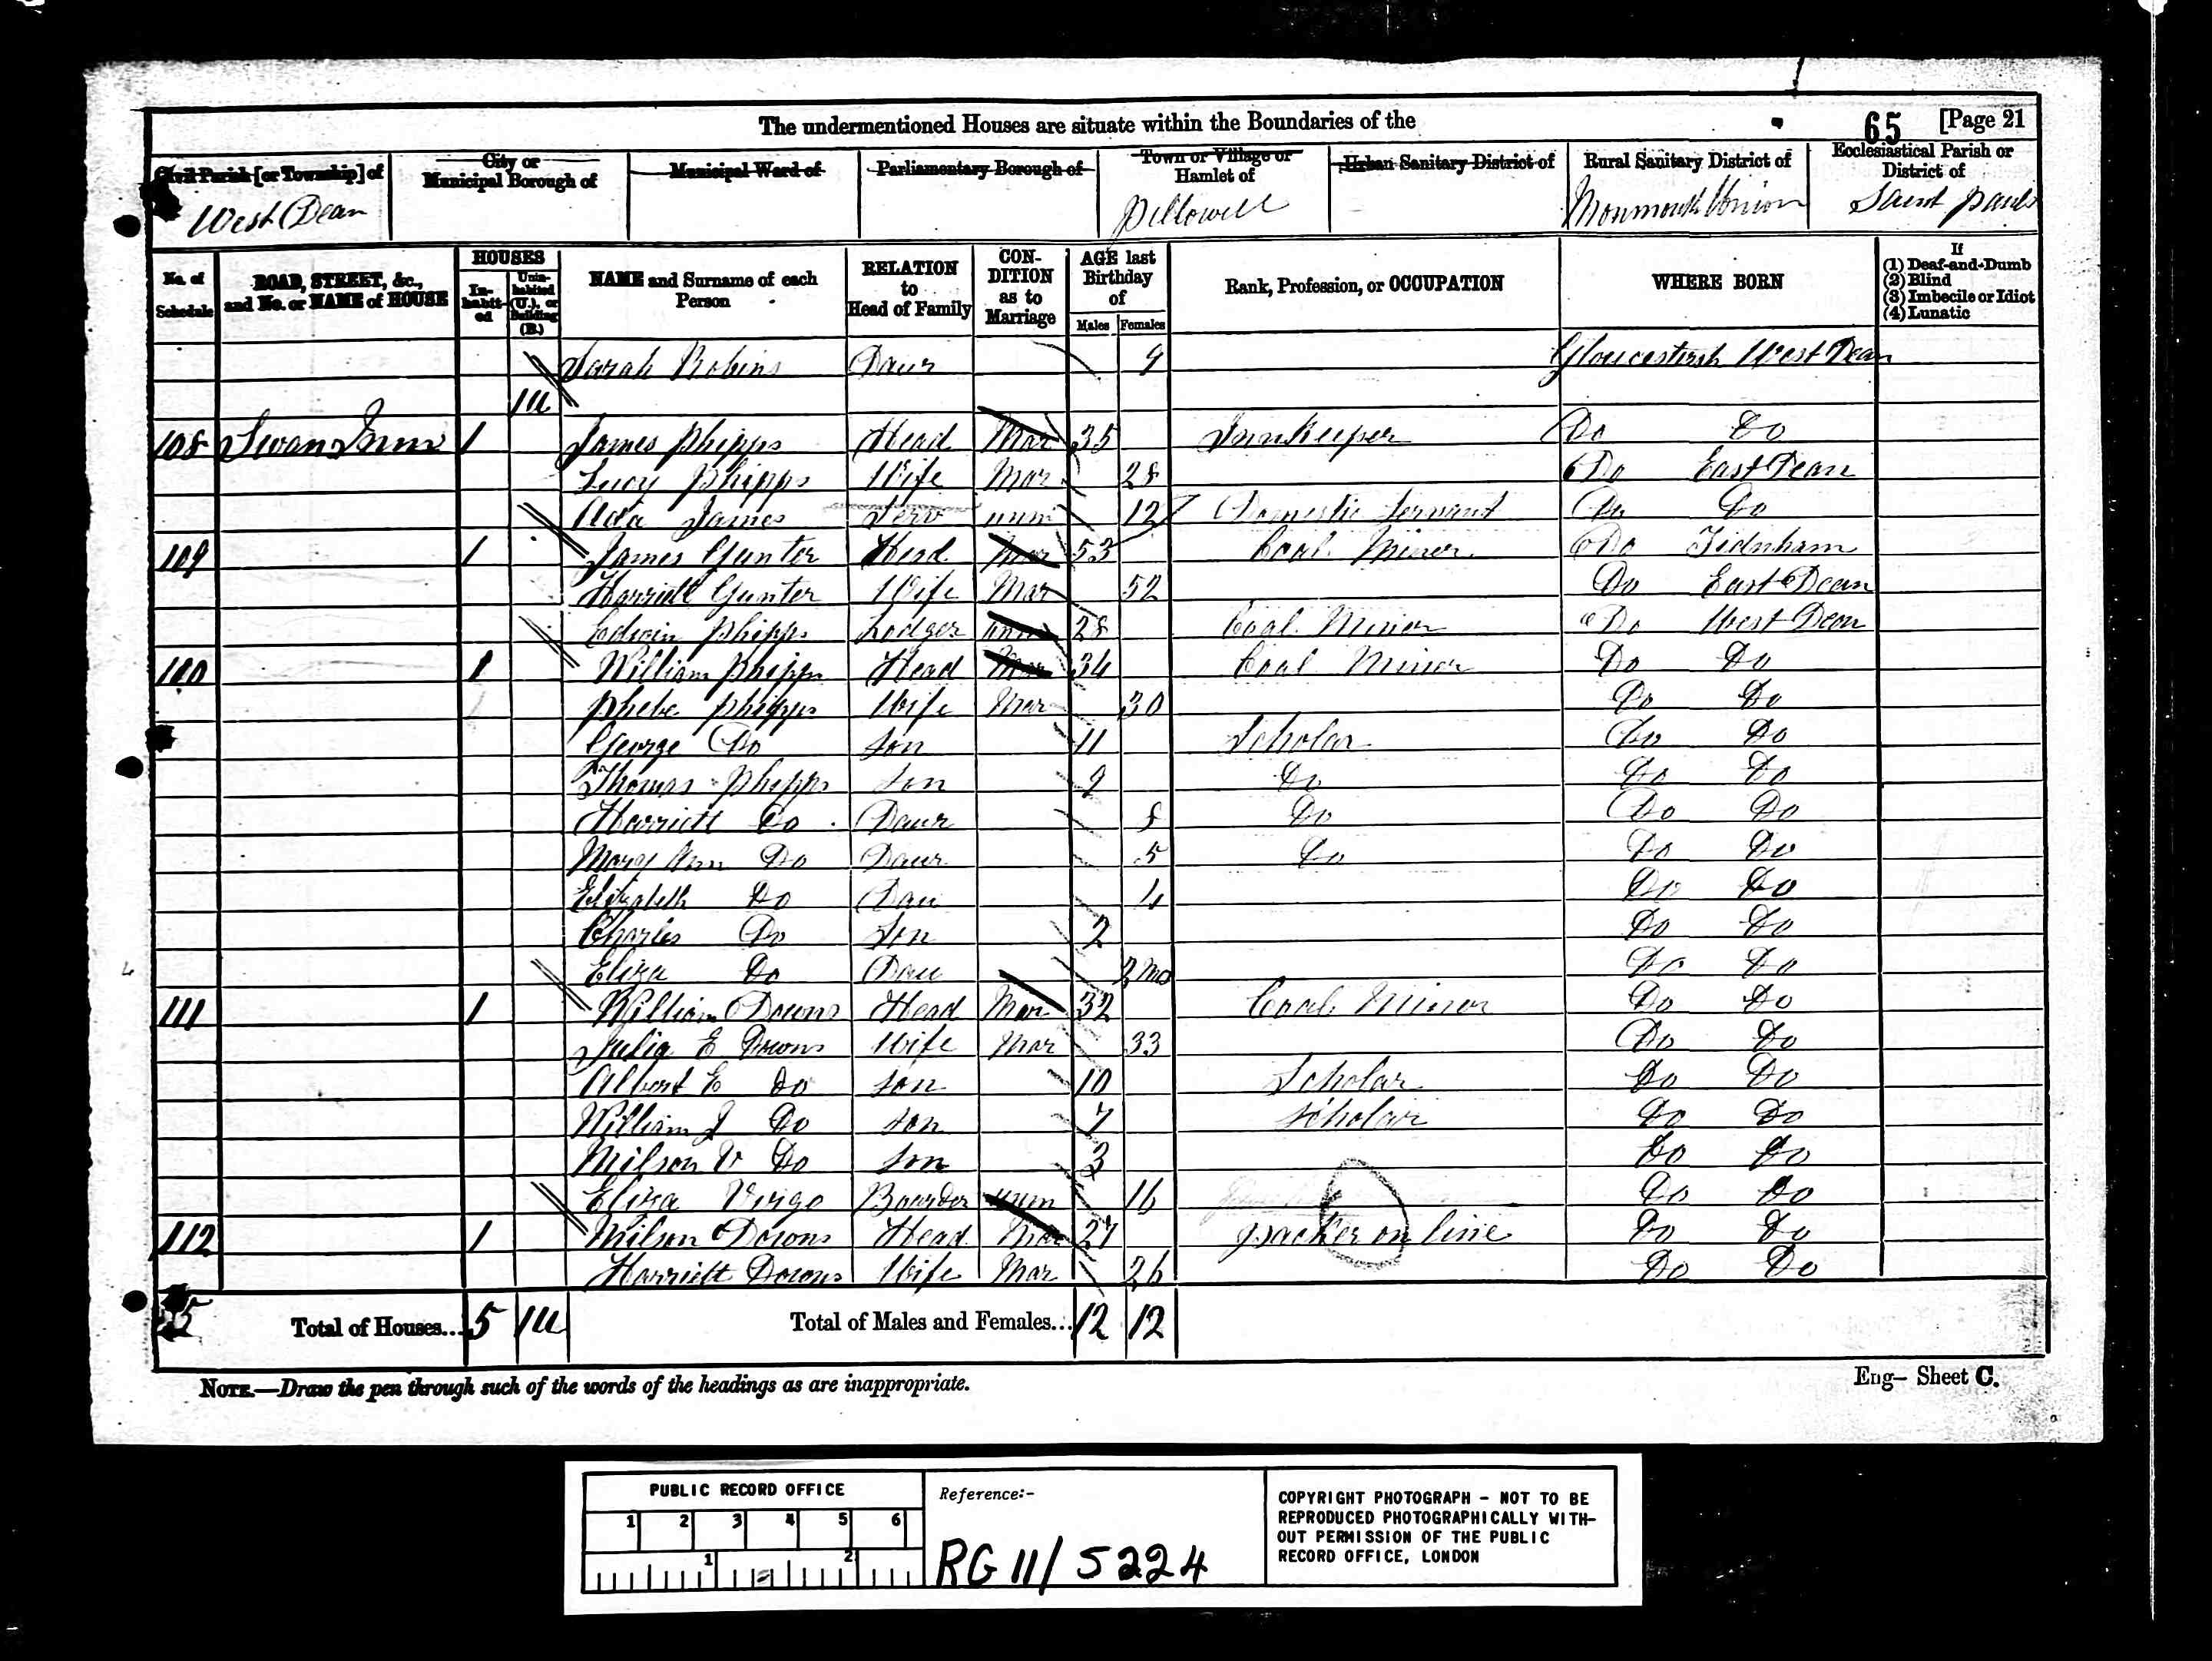 The undermentioned Houses are situate within the Boundaries of the
65 [Page 21
Civil Parish [or Township] of
West Dean
City or Municipal Borough of
Municipal Ward of
Parliamentary Borough of
Town or Village or Hamlet of
Pillowell
Urban Sanitary District of
Rural Sanitary District of
Monmouth Union
Ecclesiastical Parish or District of
Saint Pauls
No. of Schedule
ROAD, STREET, &c., and No. or NAME of HOUSE
HOUSES
In-habit-ed
Unin-habited (U.), or Building (B.)
NAME and Surname of each Person
RELATION to Head of Family
CON-DITION as to Marriage
AGE last Birthday of
Males Females
Rank, Profession, or OCCUPATION
WHERE BORN
If
(1) Deaf-and-Dumb
(2) Blind
(3) Imbecile or Idiot
(4) Lunatic
Sarah Robins Daur 9 Gloucestersh West Dean
1U
108 Swan Inn 1 James Phipps Head Mar 35 Innkeeper Do Do
Lucy Phipps Wife Mar 28 Do East Dean
Ada James Serv unm 12 Domestic Servant Do Do
109 1 James Gunter Head Mar 53 Coal Miner Do Tidnham
Harriett Gunter Wife Mar 52 Do East Dean
Edwin Phipps Lodger unm 28 Coal Minor Do West Dean
110 1 William Phipps Head Mar 34 Coal Minor Do Do
Phebe Phipps Wife Mar 30 Do Do
George Do Son 11 Scholar Do Do
Thomas Phipps Son 9 Do Do Do
Harriett Do Daur 8 Do Do Do
Mary Ann Do Daur 5 Do Do Do
Elizabeth Do Dau 4 Do Do
Charles Do Son 2 Do Do
Eliza Do Dau 2 Mo Do Do
111 1 William Downs Head Mar 32 Coal Minor Do Do
Julia E Downs Wife Mar 33 Do Do
Albert E Do Son 10 Scholar Do Do
William J Do Son 7 Scholar Do Do
Milson V Do Son 3 Do Do
Eliza Virgo Boarder unm 16 Do Do
112 1 Milson Downs Head Mar 27 packer on line Do Do
Harriett Downs Wife Mar 26 Do Do
Total of Houses... 5 1U Total of Males and Females... 12 12
NOTE.—Draw the pen through such of the words of the headings as are inappropriate.
Eng— Sheet C.
PUBLIC RECORD OFFICE
1 2 3 4 5 6
1 2
Reference:-
RG 11/5224
COPYRIGHT PHOTOGRAPH - NOT TO BE
REPRODUCED PHOTOGRAPHICALLY WITH-
OUT PERMISSION OF THE PUBLIC
RECORD OFFICE, LONDON